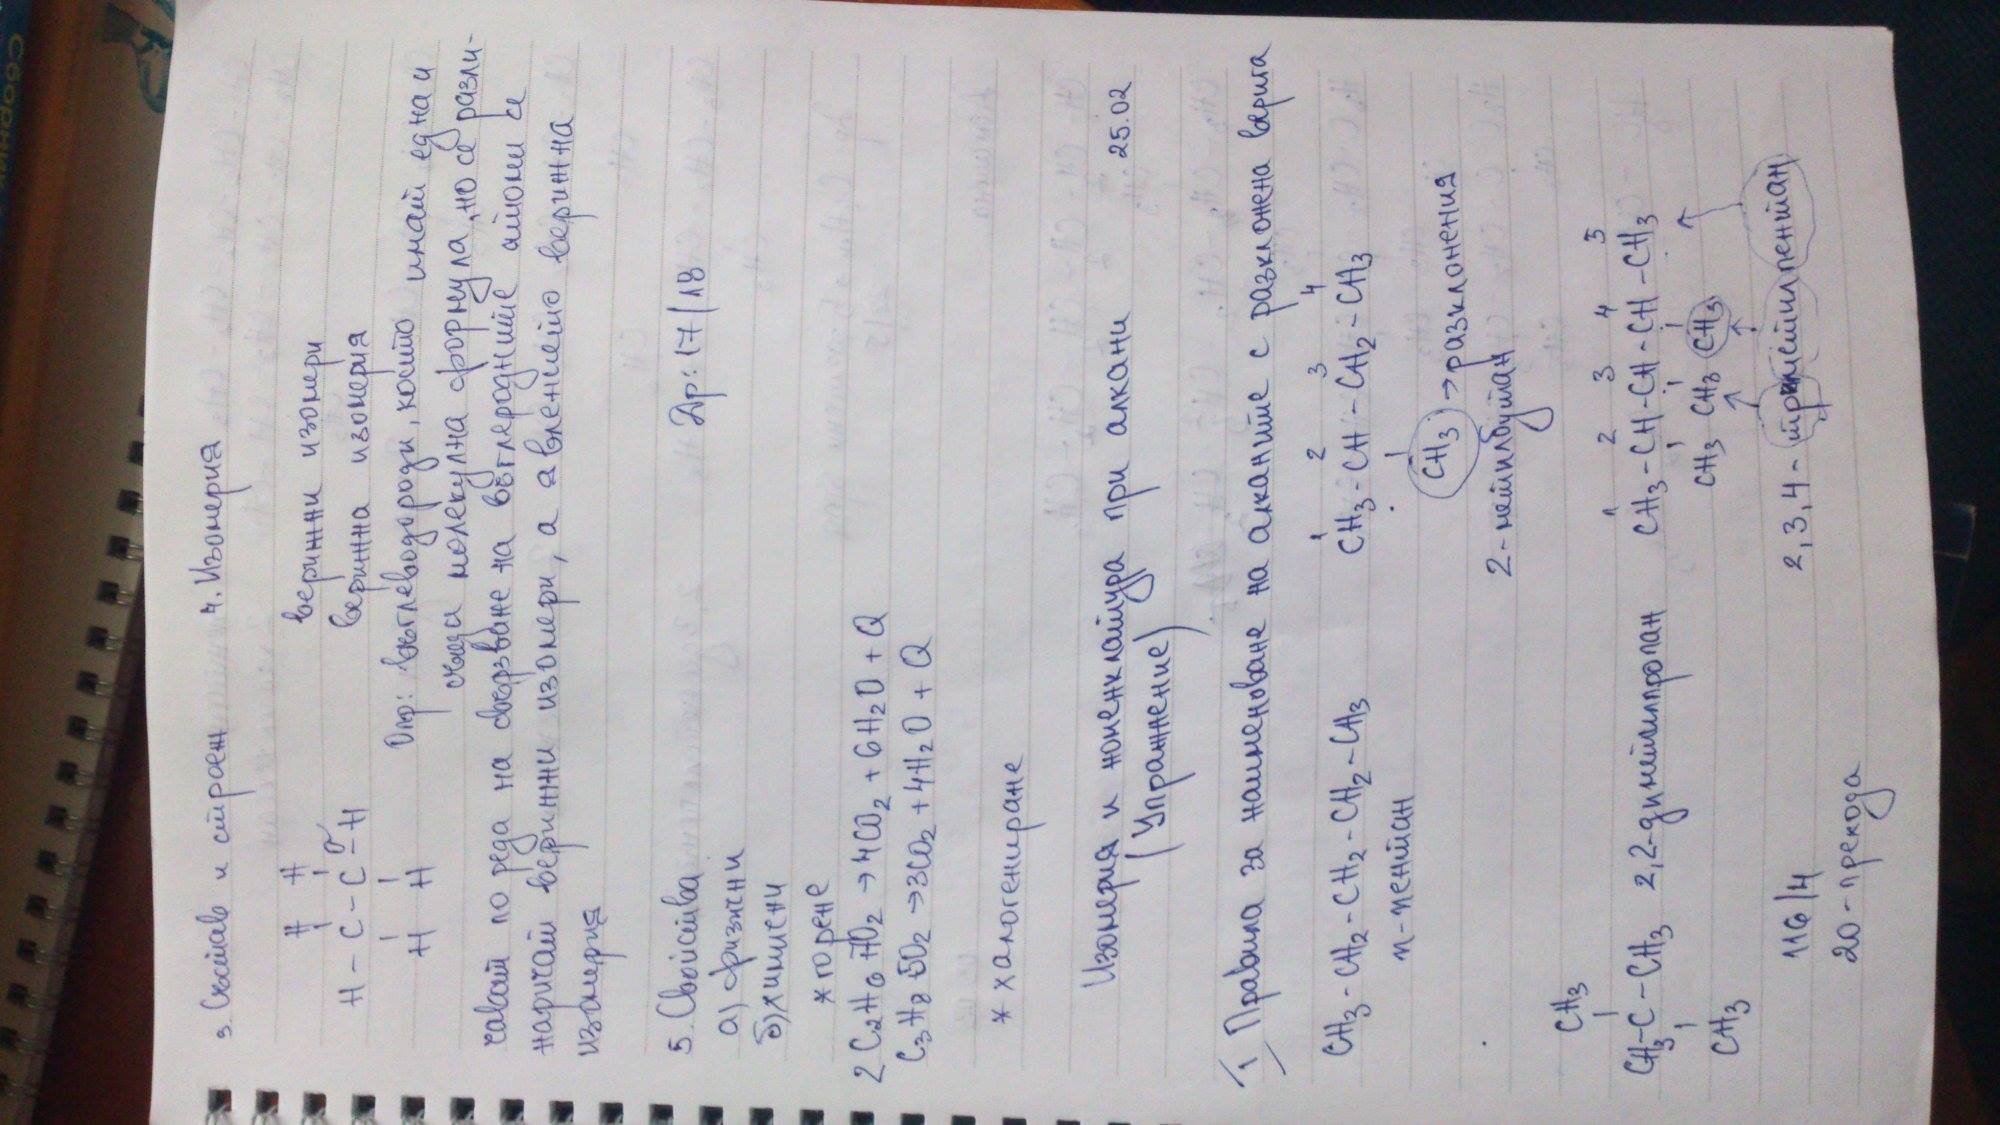 3. Състав и строеж
4. Изомерия
H H
H - C - C - H
H H
верижни изомери
верижна изомерия
Опр: Въглеводороди, който имат една и
съща молекулна формула, но се разли-
чават по реда на свързване на въглеродните атоми се
наричат верижни изомери, а явлението верижна
изомерия
5. Свойства
Др: 17/18
а) физични
б) химични
* горене
2 C2H6 7O2 → 4CO2 + 6H2O + Q
C3H8 5O2 → 3CO2 + 4H2O + Q
* халогениране
Изомерия и номенклатура при алкани 25.02
(Упражнение)
I Правила за наименоване на алканите с разклонена верига
CH3 - CH2 - CH2 - CH2 - CH3
n-пентан
1 2 3 4
CH3 - CH - CH2 - CH3
CH3 → разклонения
2-метилбутан
CH3
CH3 - C - CH3 2,2-диметилпропан
CH3
1 2 3 4 5
CH3 - CH - CH - CH - CH3
CH3 CH3 CH3
2,3,4 - триметилпентан
116/4
20 - прекода